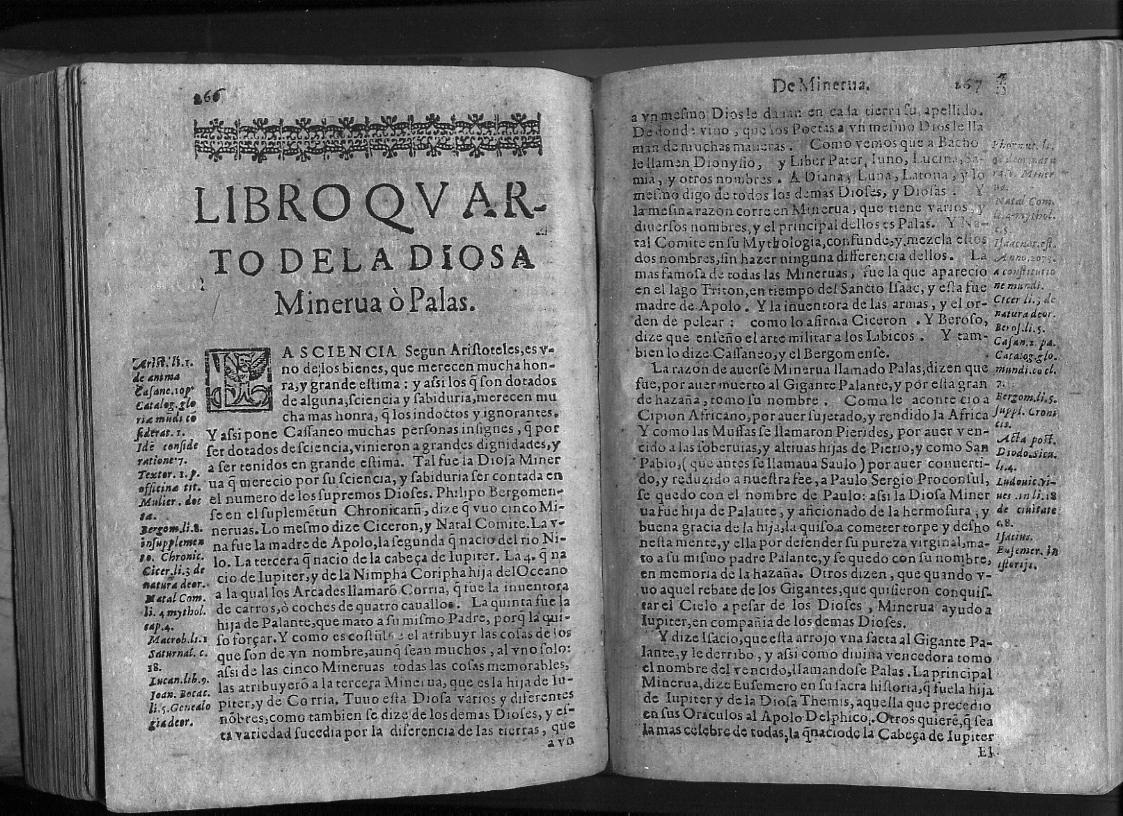 266
LIBRO QVAR-
TO DE LA DIOSA
Minerua ò Palas.
Arist. li. 1.
de anima
Casane. 10 p
Catalog. glo
ria mũdi co
siderat. 1.
Idẽ conside
ratione 7.
Textor. 1. p.
officina tit.
Mulier. doc
ta.
Bergom. li. 8.
in supplemen
to. Chronic.
Cicer. li. 3 de
natura deor.
Natal Com.
li. 4 mythol.
cap. 4.
Macrob. li. 1
Saturnal. c.
18.
Lucan. lib. 9.
Joan. Bocac.
li. 5. Genealo
gia deor.
LA SCIENCIA Segun Aristoteles, es v-
no de los bienes, que merecen mucha hon-
ra, y grande estima: y assi los q̃ son dotados
de alguna, sciencia y sabiduria, merecen mu
cha mas honra, q̃ los indoctos y ignorantes.
Y assi pone Cassaneo muchas personas insignes, q̃ por
ser dotados de sciencia, vinieron a grandes dignidades, y
a ser tenidos en grande estima. Tal fue la Diosa Miner
ua q̃ merecio por su sciencia, y sabiduria ser contada en
el numero de los supremos Dioses. Philipo Bergomen-
se en el suplemẽtun Chronicarũ, dize q̃ vuo cinco Mi-
neruas. Lo mesmo dize Ciceron, y Natal Comite. La v-
na fue la madre de Apolo, la segunda q̃ nacio del rio Ni-
lo. La tercera q̃ nacio de la cabeça de Iupiter. La 4. q̃ na
cio de Iupiter, y de la Nimpha Coripha hija del Oceano
a la qual los Arcades llamarõ Corria, q̃ fue la inuentora
de carros, ò coches de quatro cauallos. La quinta fue la
hija de Palante, que mato a su mismo Padre, porq̃ la qui-
so forçar. Y como es costũbre el atribuyr las cosas de los
que son de vn nombre, aunq̃ sean muchos, al vno solo:
assi de las cinco Mineruas todas las cosas memorables,
las atribuyerõ a la tercera Minerua, que es la hija de Iu-
piter, y de Corria. Tuuo esta Diosa varios y diferentes
nõbres, como tambien se dize de los demas Dioses, y es-
ta variedad sucedia por la diferencia de las tierras, que
a vn
De Minerua.
267
a vn mesmo Dios le dauan en cada tierra su, apellido.
De donde vino, que los Poetas a vn mesmo Dios le lla
man de muchas maneras. Como vemos que a Bacho
le llamen Dionysio, y Liber Pater, Iuno, Lucina, Sa-
mia, y otros nombres. A Diana, Luna, Latona, y lo
mesmo digo de todos los demas Dioses, y Diosas. Y
la mesma razon corre en Minerua, que tiene varios, y
diuersos nombres, y el principal dellos es Palas. Y Na-
tal Comite en su Mythologia, confunde, y mezcla estos
dos nombres, sin hazer ninguna differencia dellos. La
mas famosa de todas las Mineruas, fue la que aparecio
en el lago Triton, en tiempo del Sancto Isaac, y esta fue
madre de Apolo. Y la inuentora de las armas, y el or-
den de pelear: como lo afirma Ciceron. Y Beroso,
dize que enseño el arte militar a los Libicos. Y tam-
bien lo dize Cassaneo, y el Bergomense.
La razon de auerse Minerua llamado Palas, dizen que
fue, por auer muerto al Gigante Palante, y por esta gran
de hazaña, tomo su nombre. Como le acontecio a
Cipion Africano, por auer sujetado, y rendido la Africa
Y como las Mussas se llamaron Pierides, por auer ven-
cido a las soberuias, y altiuas hijas de Pierio, y como San
Pablo, (que antes se llamaua Saulo) por auer conuerti-
do, y reduzido a nuestra fee, a Paulo Sergio Proconsul,
se quedo con el nombre de Paulo: assi la Diosa Miner
ua fue hija de Palante, y aficionado de la hermosura, y
buena gracia de la hija, la quiso a cometer torpe y desho
nestamente, y ella por defender su pureza virginal, ma-
to a su mismo padre Palante, y se quedo con su nombre,
en memoria de la hazaña. Otros dizen, que quando v-
uo aquel rebate de los Gigantes, que quisieron conquis-
tar el Cielo a pesar de los Dioses, Minerua ayudo a
Iupiter, en compañia de los demas Dioses.
Y dize Isacio, que esta arrojo vna saeta al Gigante Pa-
lante, y le derribo, y assi como diuina vencedora tomo
el nombre del vencido, llamandose Palas. La principal
Minerua, dize Eusemero en su sacra historia, q̃ fue la hija
de Iupiter y de la Diosa Themis, aquella que precedio
en sus Oraculos al Apolo Delphico. Otros quierẽ, q̃ sea
la mas celebre de todas, la q̃ nacio de la Cabeça de Iupiter
El
Natal Com.
li. 4 mythol.
a constitutio
ne mundi.
Cicer li. 3 de
natura deor.
Beros. li. 5.
Casan. 2. pa.
Catalog. glo.
mundi. co cl.
7.
Bergom. li. 5.
suppl. Croni
cis.
Acta post.
Diodo. sicu.
li. 4.
Ludouic. vi-
ues. in li. 18
de ciuitate
c. 8.
Isacius.
Eusemer. in
istorijs.